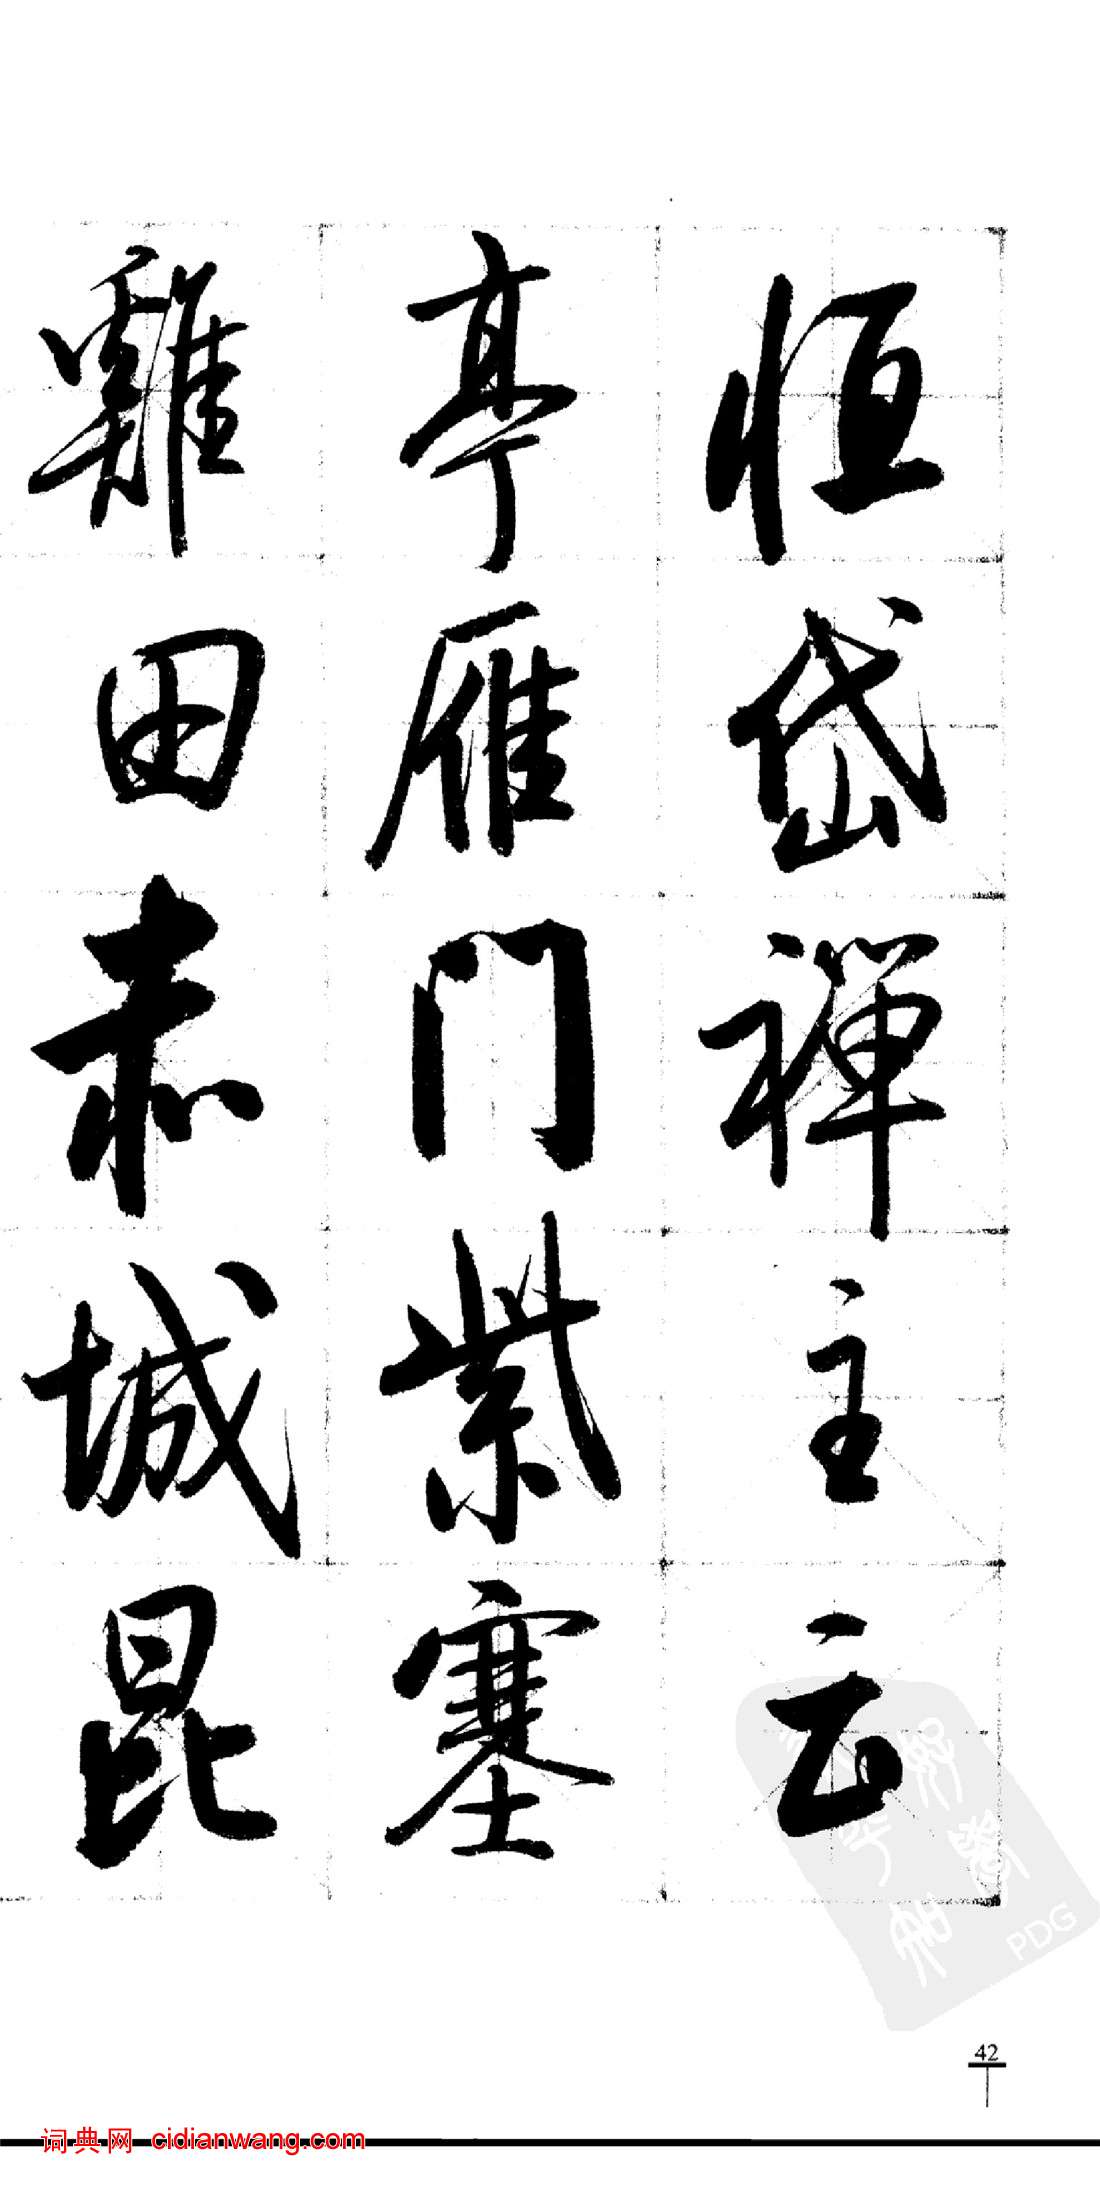 恒岱禅主云
亭雁门紫塞
雞田赤城昆
42
词典网 cidianwang.com
PDG